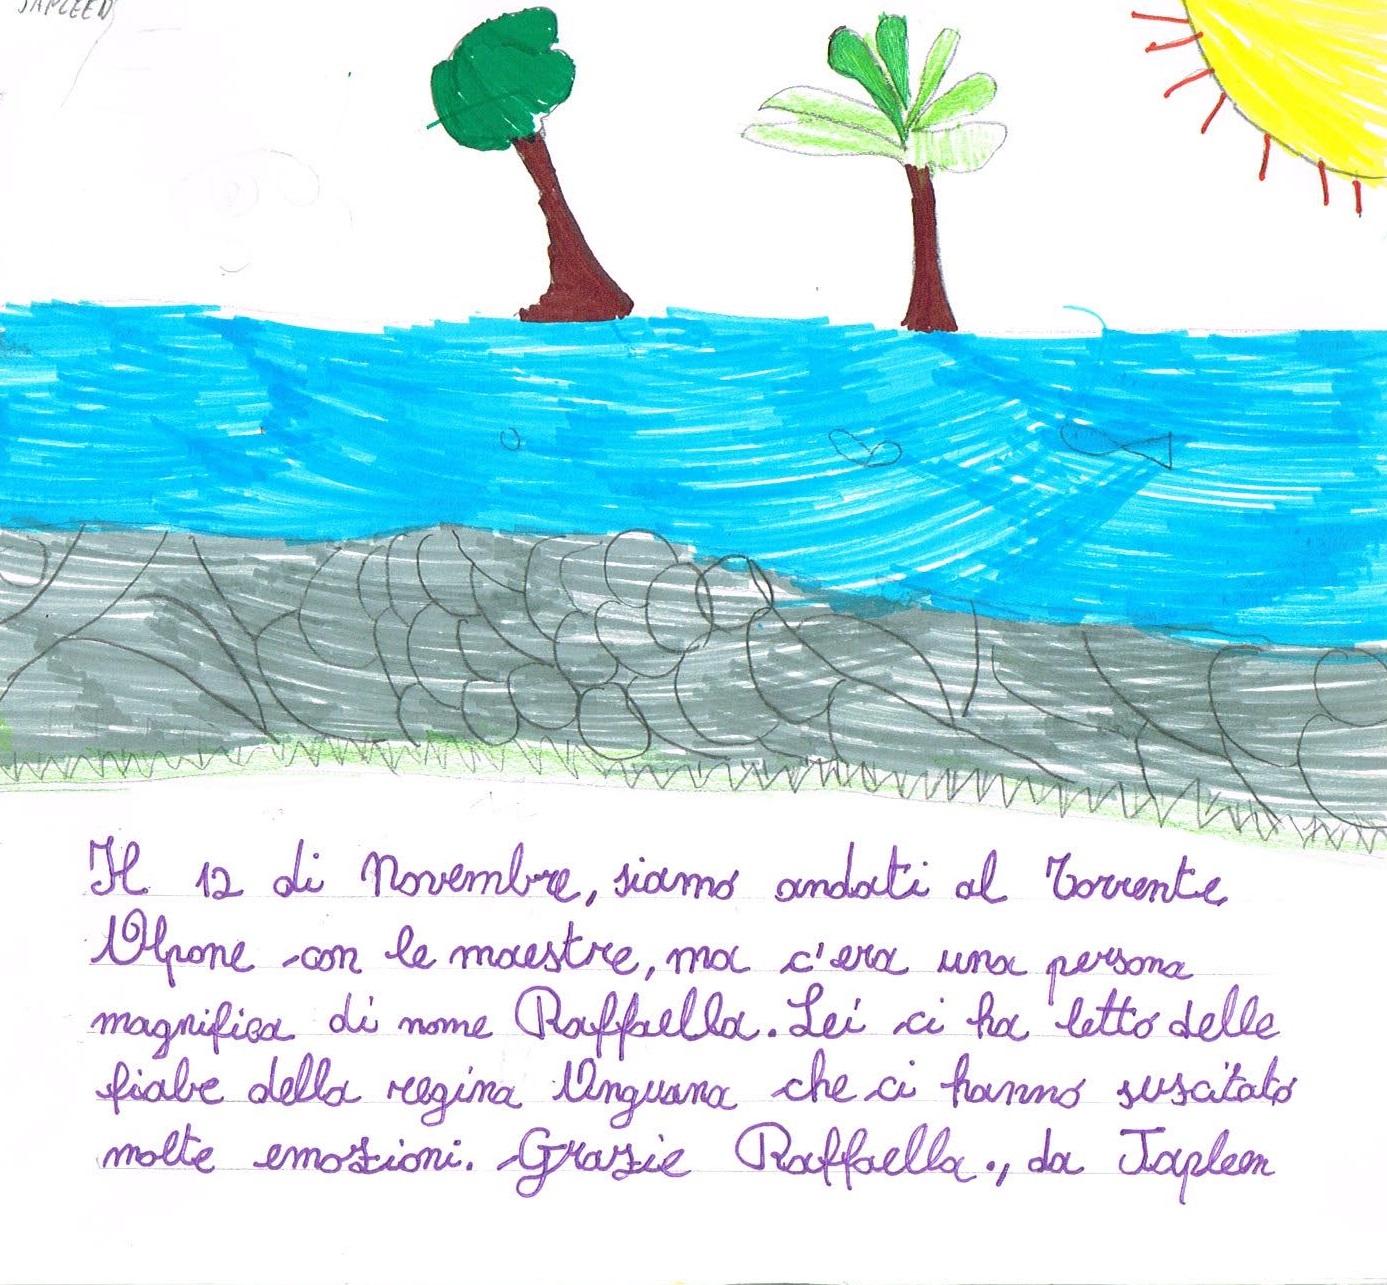 JAPLEEN
Il 12 di Novembre, siamo andati al Torrente
Alpone con le maestre, ma c'era una persona
magnifica di nome Raffaella. Lei ci ha letto delle
fiabe della regina Anguana che ci hanno suscitato
molte emozioni. Grazie Raffaella., da Japleen